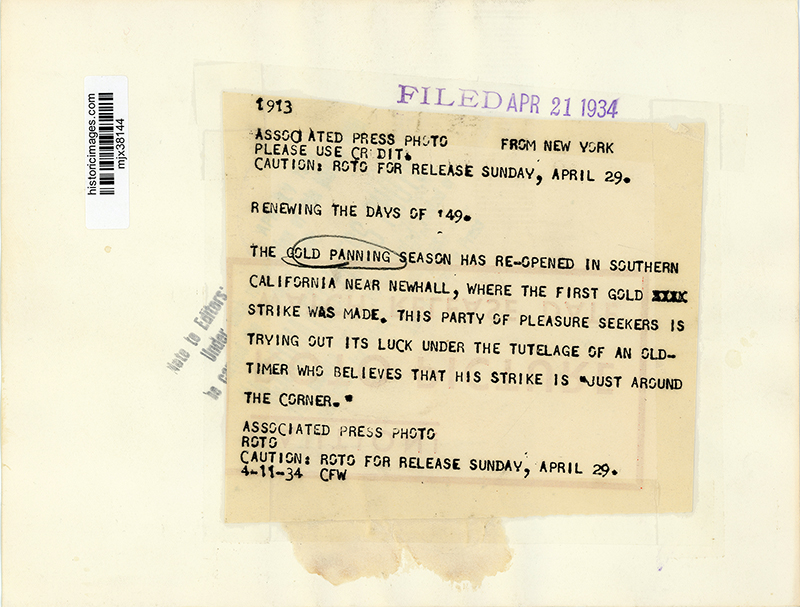 historicimages.com
mjx38144
FILED APR 21 1934
1913
ASSOCIATED PRESS PHOTO FROM NEW YORK
PLEASE USE CR DIT.
CAUTION: ROTO FOR RELEASE SUNDAY, APRIL 29.
RENEWING THE DAYS OF '49.
THE GOLD PANNING SEASON HAS RE-OPENED IN SOUTHERN
CALIFORNIA NEAR NEWHALL, WHERE THE FIRST GOLD XXXX
STRIKE WAS MADE. THIS PARTY OF PLEASURE SEEKERS IS
TRYING OUT ITS LUCK UNDER THE TUTELAGE OF AN OLD-
TIMER WHO BELIEVES THAT HIS STRIKE IS "JUST AROUND
THE CORNER."
ASSOCIATED PRESS PHOTO
ROTO
CAUTION: ROTO FOR RELEASE SUNDAY, APRIL 29.
4-11-34 CFW
Note to Editors:
Under